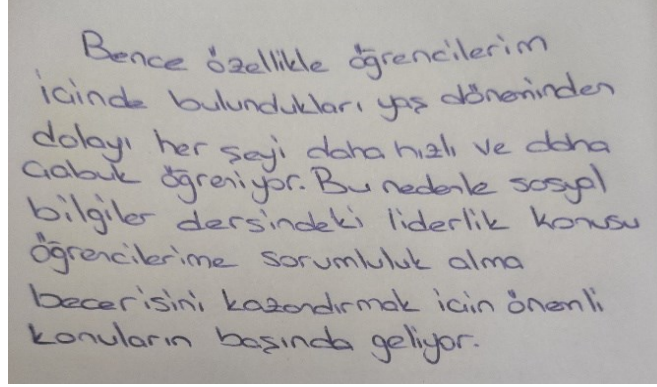 Bence özellikle öğrencilerim
içinde bulundukları yaş döneminden
dolayı her şeyi daha hızlı ve daha
çabuk öğreniyor. Bu nedenle sosyal
bilgiler dersindeki liderlik konusu
öğrencilerime sorumluluk alma
becerisini kazandırmak için önemli
konuların başında geliyor.